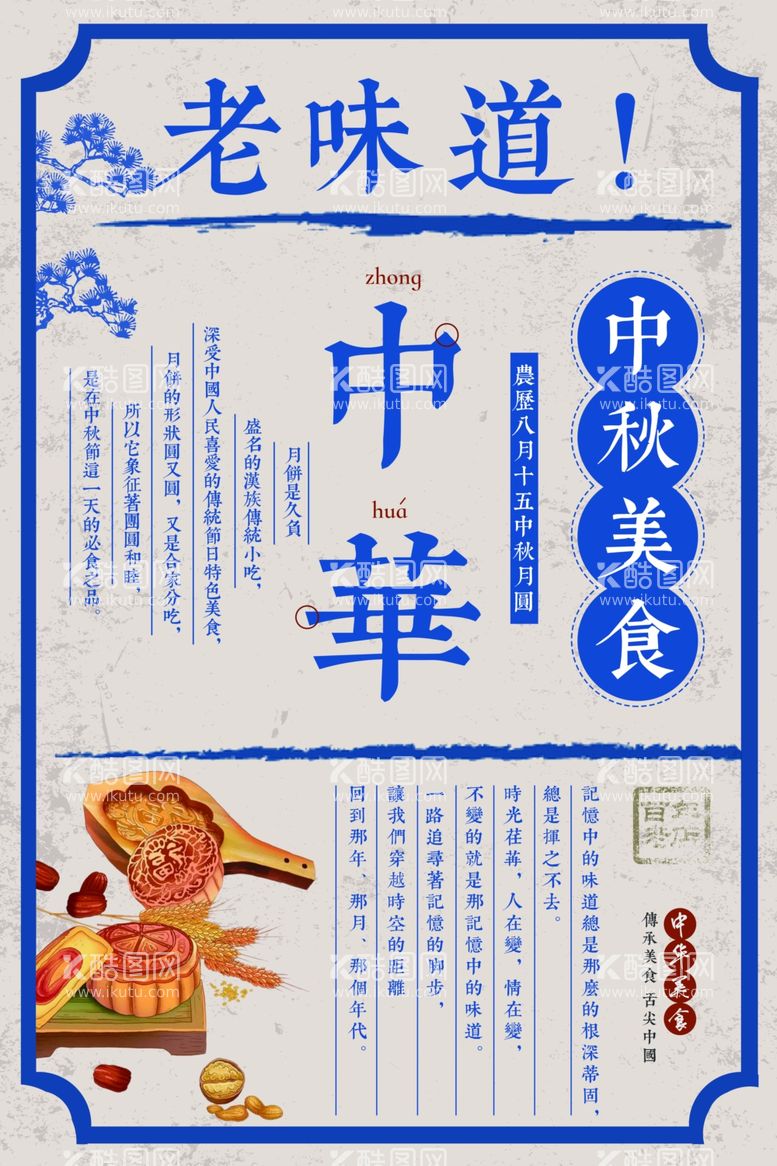 老味道！
中秋美食
農歷八月十五中秋月圓
zhong
中
huá
華
月餅是久負
盛名的漢族傳統小吃，
深受中國人民喜愛的傳統節日特色美食，
月餅的形狀圓又圓，又是合家分吃，
所以它象征著團圓和睦，
是在中秋節這一天的必食之品。
中华美食
傳承美食 舌尖中國
記憶中的味道總是那麼的根深蒂固，
總是揮之不去。
時光荏苒，人在變，情在變，
不變的就是那記憶中的味道。
一路追尋著記憶的腳步，
讓我們穿越時空的距離
回到那年、那月、那個年代。
酷图网
www.ikutu.com